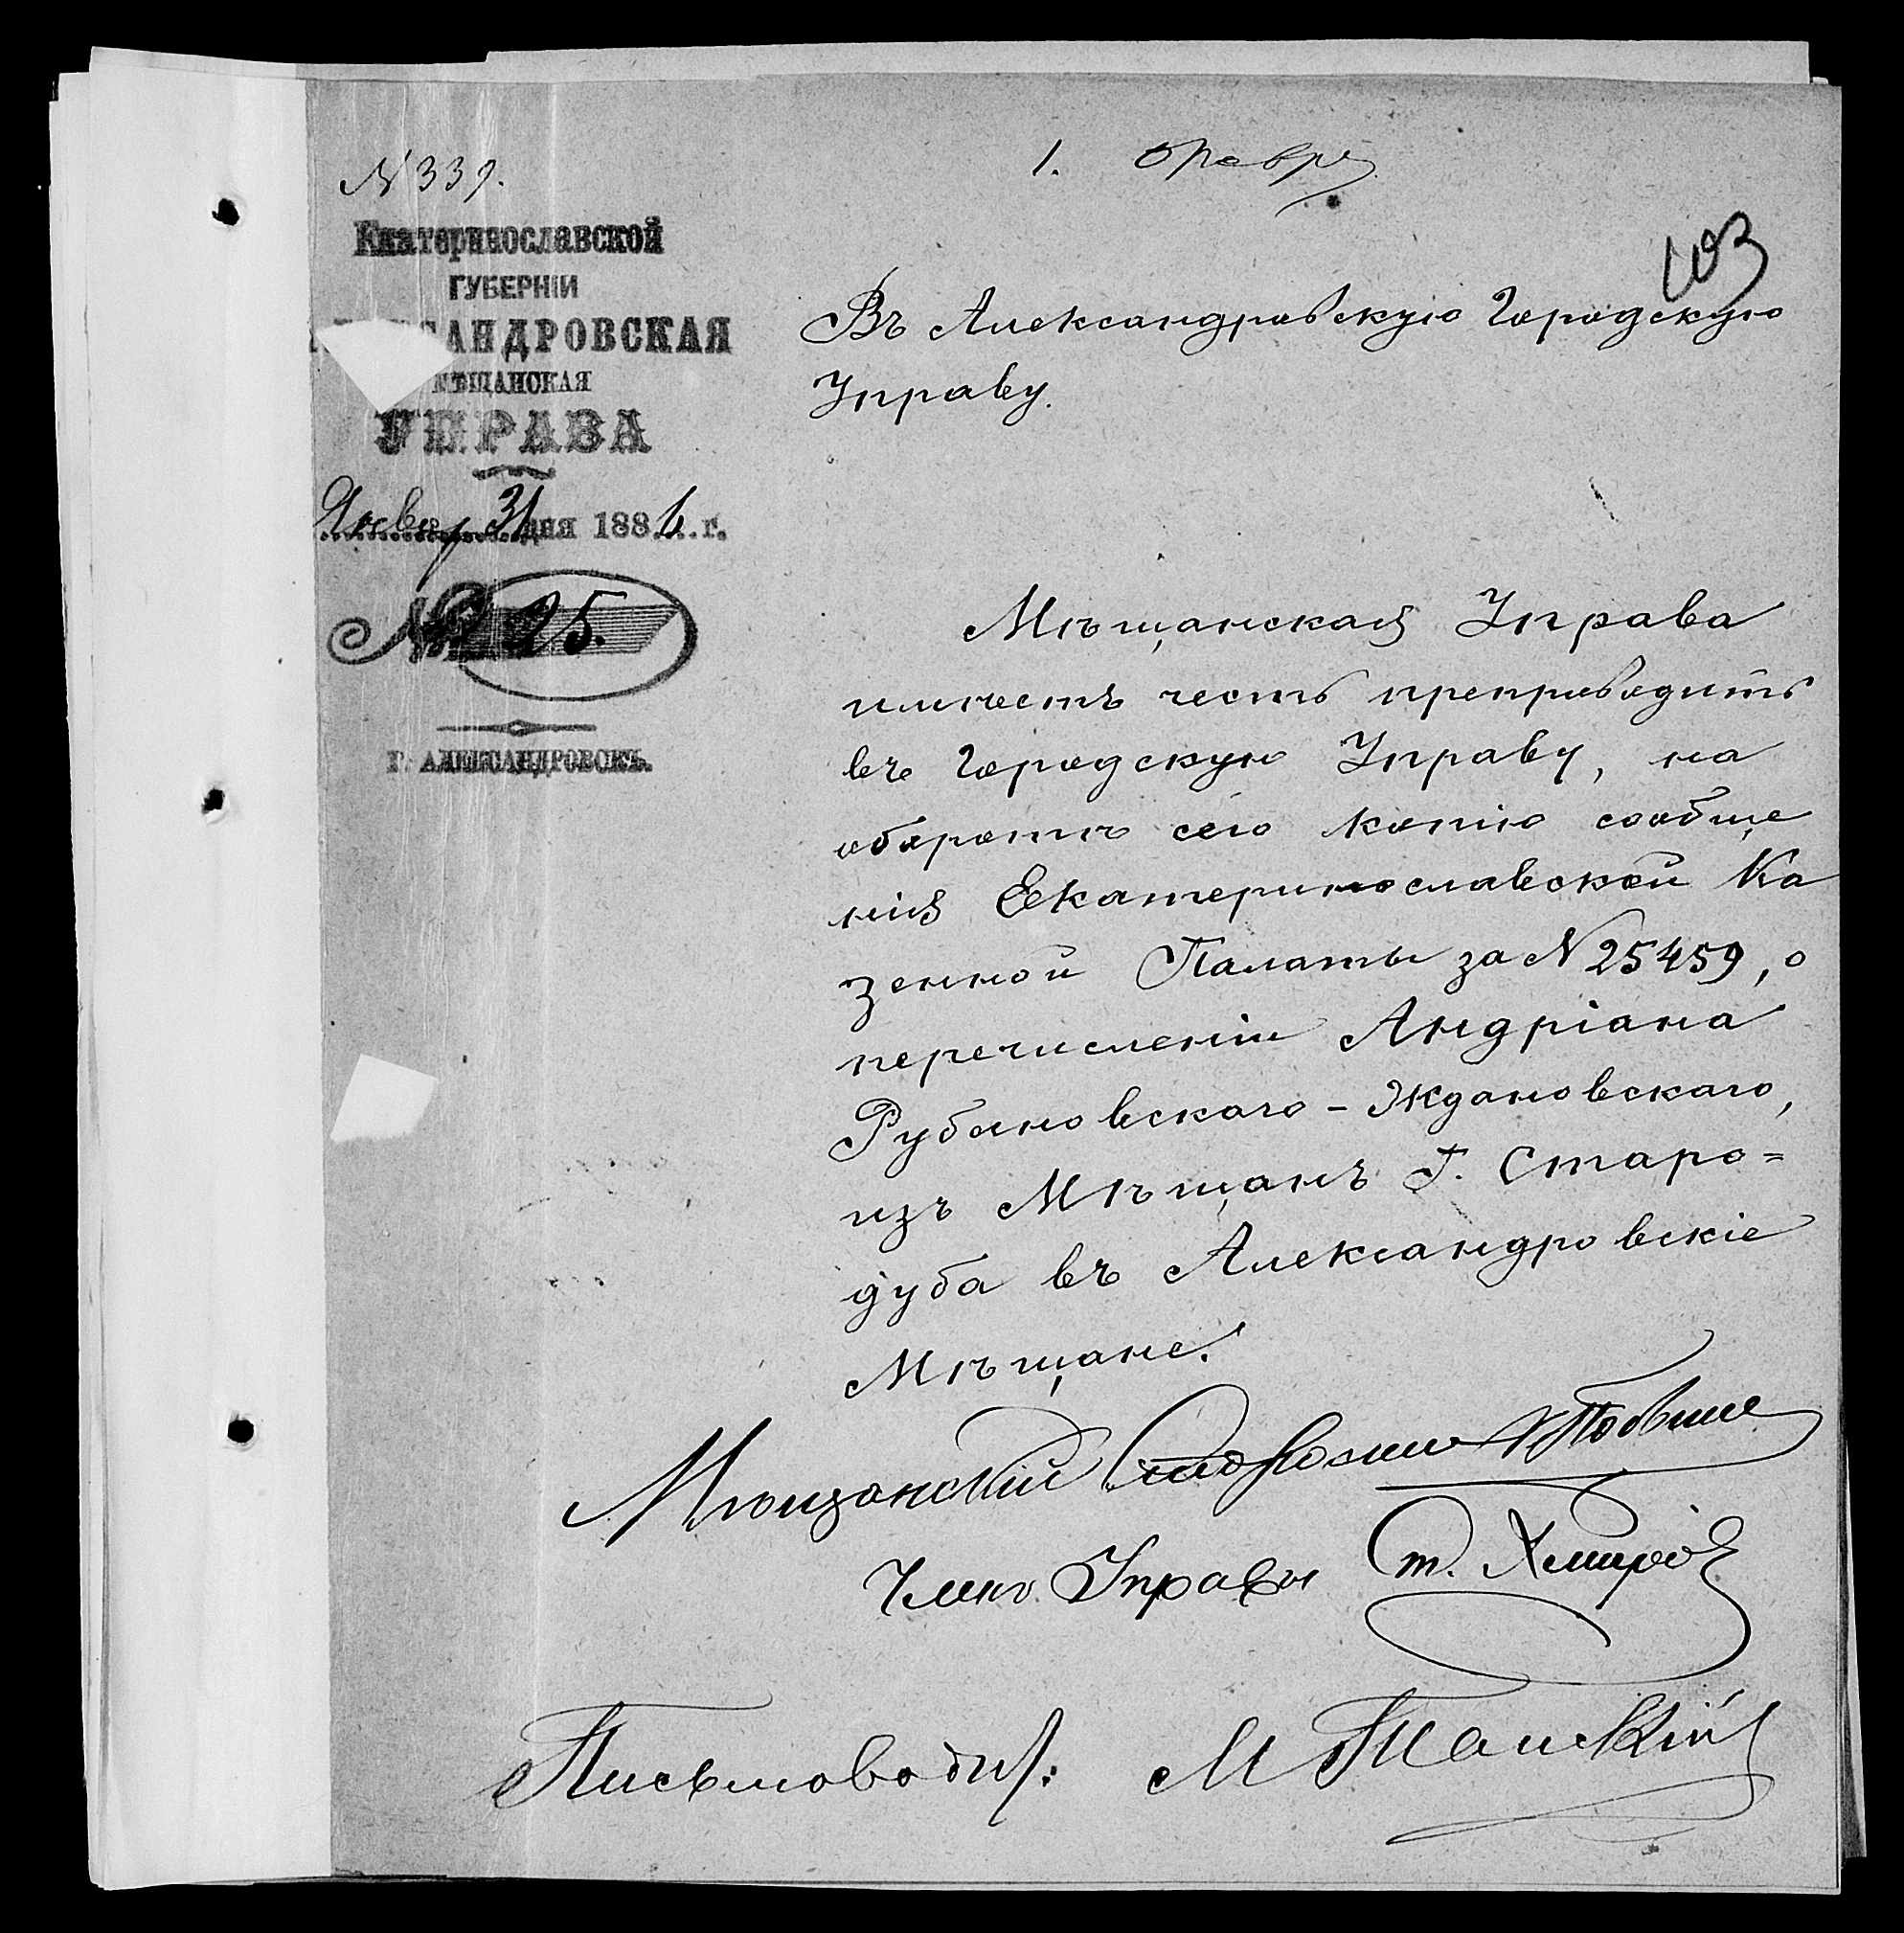 N 339.
1. Февр
103
Екатеринославской
ГУБЕРНІИ
АНДРОВСКАЯ
МѢЩАНСКАЯ
УПРАВА
Январ 31 дня 1881 г.
№ 25.
г. АЛЕКСАНДРОВСКЪ.
Въ Александровскую Городскую
Управу.
Мѣщанская Управа
имѣетъ честь препроводить
въ Городскую Управу, на
оборотѣ сего копію сообще
нія Екатеринославской Ка
зенной Палаты за N 25459, о
перечисленіи Андріана
Рубановскаго-Ждановскаго,
изъ Мѣщанъ Г. Старо=
дуба въ Александровскіе
Мѣщане.
Мѣщанскій
Членъ Управы
Письмоводит: